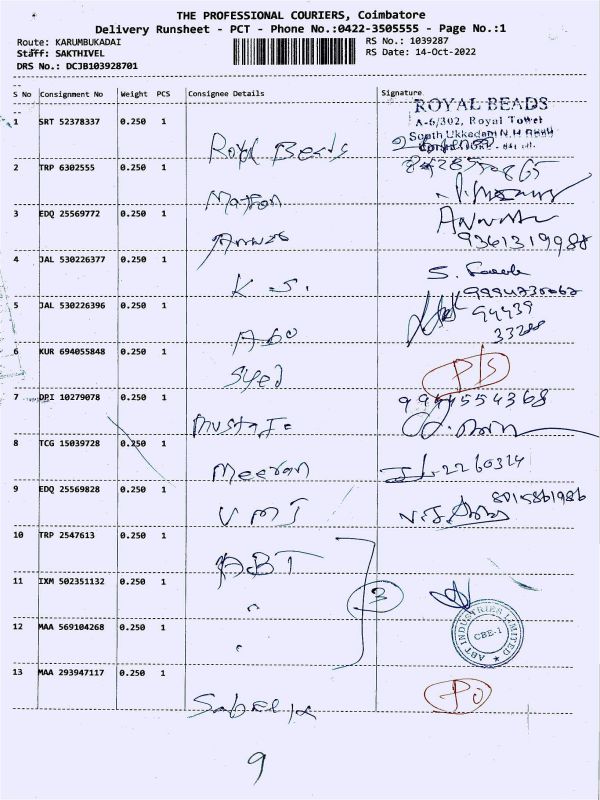 THE PROFESSIONAL COURIERS, Coimbatore
Delivery Runsheet - PCT - Phone No.:0422-3505555 - Page No.:1
Route: KARUMBUKADAI RS No.: 1039287
Staff: SAKTHIVEL RS Date: 14-Oct-2022
DRS No.: DCJB103928701
S No Consignment No Weight PCS Consignee Details Signature
ROYAL BEADS
A-6/302, Royal Tower
South Ukkadam N.H Road
1 SRT 52378337 0.250 1 Royal Beads
2 TRP 6302555 0.250 1
3 EDQ 25569772 0.250 1 Anwar
9361319988
4 JAL 530226377 0.250 1 K. S. S.
5 JAL 530226396 0.250 1 94439
33288
6 KUR 694055848 0.250 1 Syed
7 DPI 10279078 0.250 1 Mustafa 9944554368
8 TCG 15039728 0.250 1 Meeran
9 EDQ 25569828 0.250 1 VMT 8015861986
10 TRP 2547613 0.250 1 ABT
11 IXM 502351132 0.250 1 " 3
12 MAA 569104268 0.250 1 " ABT INDUSTRIES LIMITED CBE-1
13 MAA 293947117 0.250 1
9